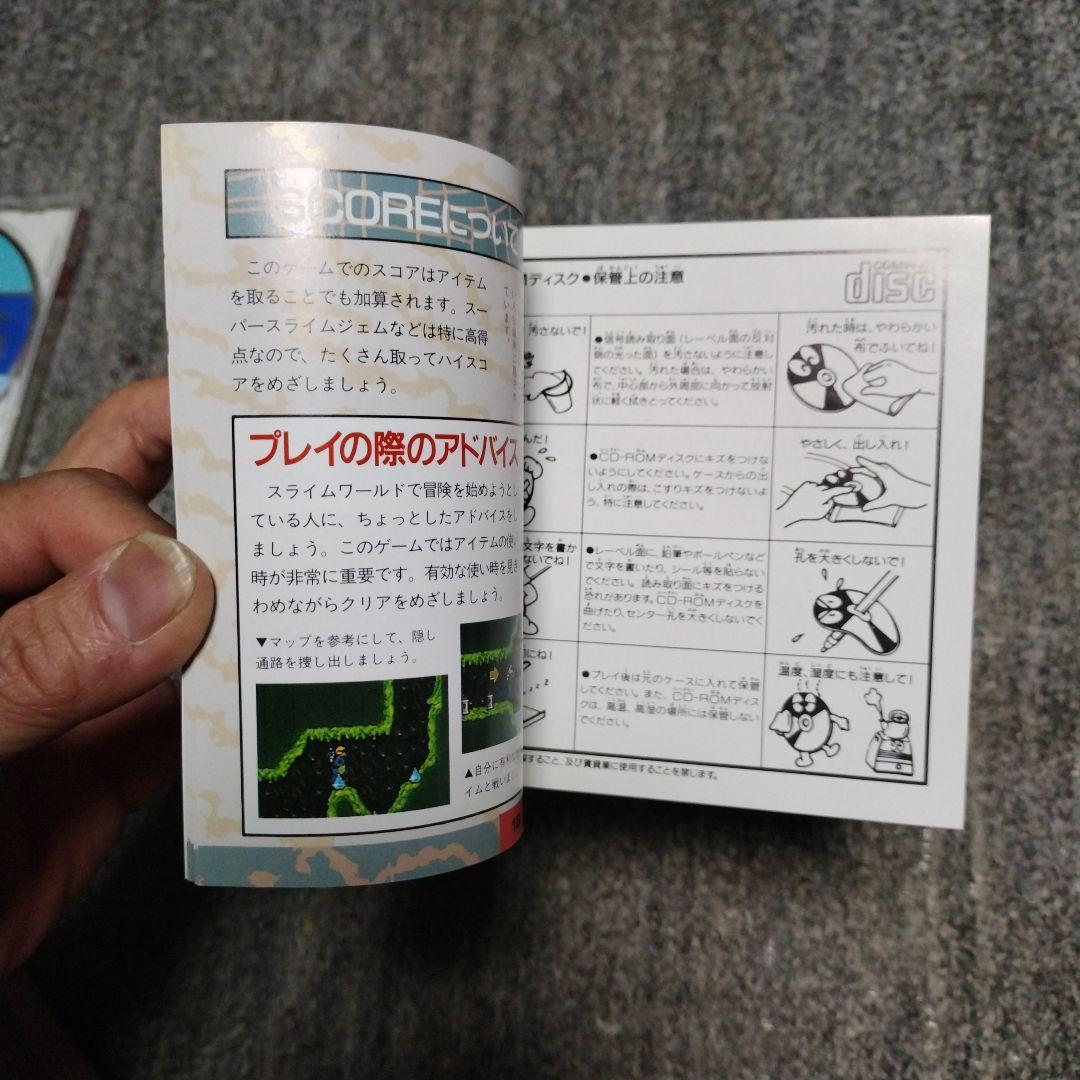 SCOREについて
このゲームでのスコアはアイテム
を取ることでも加算されます。スー
パースライムジェムなどは特に高得
点なので、たくさん取ってハイスコ
アをめざしましょう。
プレイの際のアドバイス
スライムワールドで冒険を始めようとし
ている人に、ちょっとしたアドバイスをし
ましょう。このゲームではアイテムの使い
時が非常に重要です。有効な使い時を見き
わめながらクリアをめざしましょう。
▼マップを参考にして、隠し
通路を捜し出しましょう。
▲自分に有利な
イムと戦いま
18
Mディスク●保管上の注意
COMPACT
disc
汚さないで!
●信号読み取り面(レーベル面の反対
側の光った面)を汚さないように注意し
てください。汚れた場合は、やわらかい
布で、中心部から外周部に向かって放射
状に軽く拭きとってください。
汚れた時は、やわらかい
布でふいてね!
んだ!
●CD-ROMディスクにキズをつけな
いようにしてください。ケースからの出
し入れの際は、こすりキズをつけないよ
う、特に注意してください。
やさしく、出し入れ!
文字を書か
ないでね!
●レーベル面に、鉛筆やボールペンなど
で文字を書いたり、シール等を貼らない
でください。読み取り面にキズをつける
恐れがあります。CD-ROMディスクを
曲げたり、センター孔を大きくしないでく
ださい。
孔を大きくしないで!
にね!
●プレイ後は元のケースに入れて保管
してください。また、CD-ROMディス
クは、高温、高湿の場所には保管しない
でください。
温度、湿度にも注意して!
すること、及び賃貸業に使用することを禁じます。